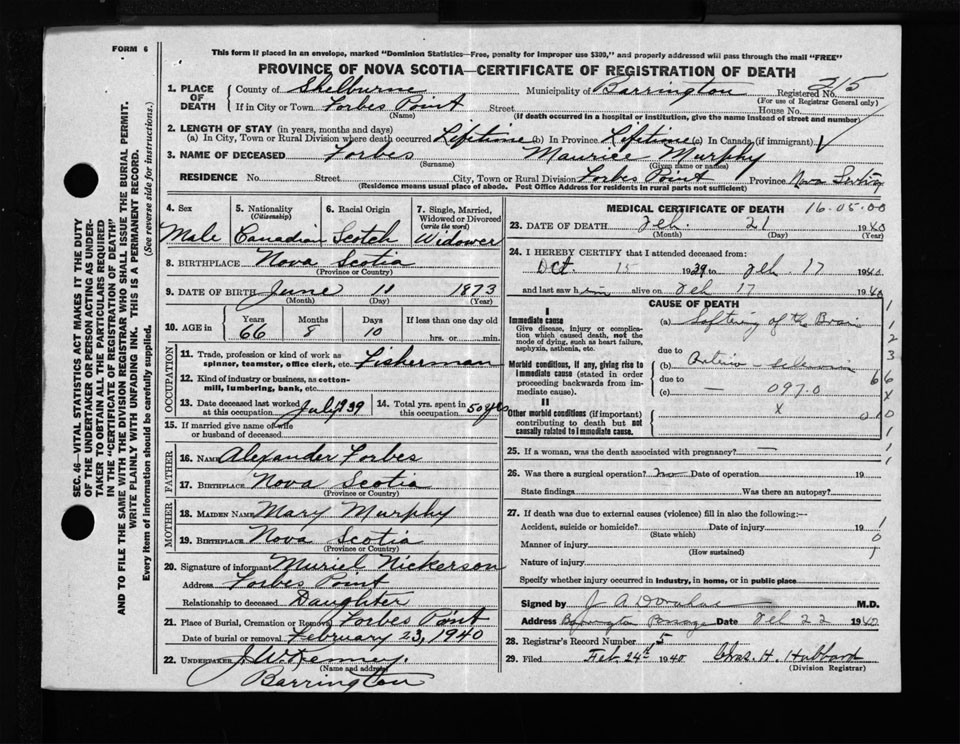 FORM 6
This form if placed in an envelope, marked "Dominion Statistics—Free, penalty for improper use $300," and properly addressed will pass through the mail "FREE"
PROVINCE OF NOVA SCOTIA—CERTIFICATE OF REGISTRATION OF DEATH
1. PLACE OF DEATH County of Shelburne Municipality of Barrington Registered No. 315
(For use of Registrar General only)
If in City or Town Forbes Point Street House No.
(Name) (If death occurred in a hospital or institution, give the name instead of street and number)
2. LENGTH OF STAY (in years, months and days)
(a) In City, Town or Rural Division where death occurred Lifetime (b) In Province Lifetime (c) In Canada (if immigrant)
3. NAME OF DECEASED Forbes Maurice Murphy
(Surname) (Given name or names)
RESIDENCE No. Street City, Town or Rural Division Forbes Point Province Nova Scotia
(Residence means usual place of abode. Post Office Address for residents in rural parts not sufficient)
4. Sex 5. Nationality (Citizenship) 6. Racial Origin 7. Single, Married, Widowed or Divorced (write the word)
Male Canadian Scotch Widower
8. BIRTHPLACE Nova Scotia
(Province or Country)
9. DATE OF BIRTH June 11 1873
(Month) (Day) (Year)
10. AGE in Years Months Days If less than one day old
66 8 10 hrs. or min.
OCCUPATION
11. Trade, profession or kind of work as spinner, teamster, office clerk, etc. Fisherman
12. Kind of industry or business, as cotton-mill, lumbering, bank, etc.
13. Date deceased last worked at this occupation July 1939 14. Total yrs. spent in this occupation 50 yrs
15. If married give name of wife or husband of deceased
FATHER
16. NAME Alexander Forbes
17. BIRTHPLACE Nova Scotia
(Province or Country)
MOTHER
18. MAIDEN NAME Mary Murphy
19. BIRTHPLACE Nova Scotia
(Province or Country)
20. Signature of informant Muriel Nickerson
Address Forbes Point
Relationship to deceased Daughter
21. Place of Burial, Cremation or Removal Forbes Point
Date of burial or removal February 23, 1940
22. UNDERTAKER J. W. Kenney.
(Name and address)
Barrington
MEDICAL CERTIFICATE OF DEATH 16-05-00
23. DATE OF DEATH Feb. 21 1940
(Month) (Day) (Year)
24. I HEREBY CERTIFY that I attended deceased from:
Oct. 15 1939 to Feb 17 1940
and last saw him alive on Feb 17 1940
CAUSE OF DEATH
I
Immediate cause
Give disease, injury or complication which caused death, not the mode of dying, such as heart failure, asphyxia, asthenia, etc.
(a) Softening of the Brain
due to
Morbid conditions, if any, giving rise to immediate cause (stated in order proceeding backwards from immediate cause).
(b) Arterio-sclerosis
due to
(c) — 097.0
II
Other morbid conditions (if important) contributing to death but not causally related to immediate cause.
25. If a woman, was the death associated with pregnancy? —
26. Was there a surgical operation? no Date of operation 19
State findings Was there an autopsy?
27. If death was due to external causes (violence) fill in also the following:—
Accident, suicide or homicide? Date of injury 19
(State which)
Manner of injury
(How sustained)
Nature of injury
Specify whether injury occurred in industry, in home, or in public place
Signed by M.D.
Address Barrington Passage Date Feb 22 1940
28. Registrar's Record Number 5
29. Filed Feb 24th 1940 Chas. H. Hubbard
(Division Registrar)
SEC. 46—VITAL STATISTICS ACT MAKES IT THE DUTY
OF THE UNDERTAKER OR PERSON ACTING AS UNDER-
TAKER TO OBTAIN ALL THE PARTICULARS REQUIRED
IN THE "CERTIFICATE OF REGISTRATION OF DEATH"
AND TO FILE THE SAME WITH THE DIVISION REGISTRAR WHO SHALL ISSUE THE BURIAL PERMIT.
WRITE PLAINLY WITH UNFADING INK. THIS IS A PERMANENT RECORD.
Every item of information should be carefully supplied. (See reverse side for instructions.)